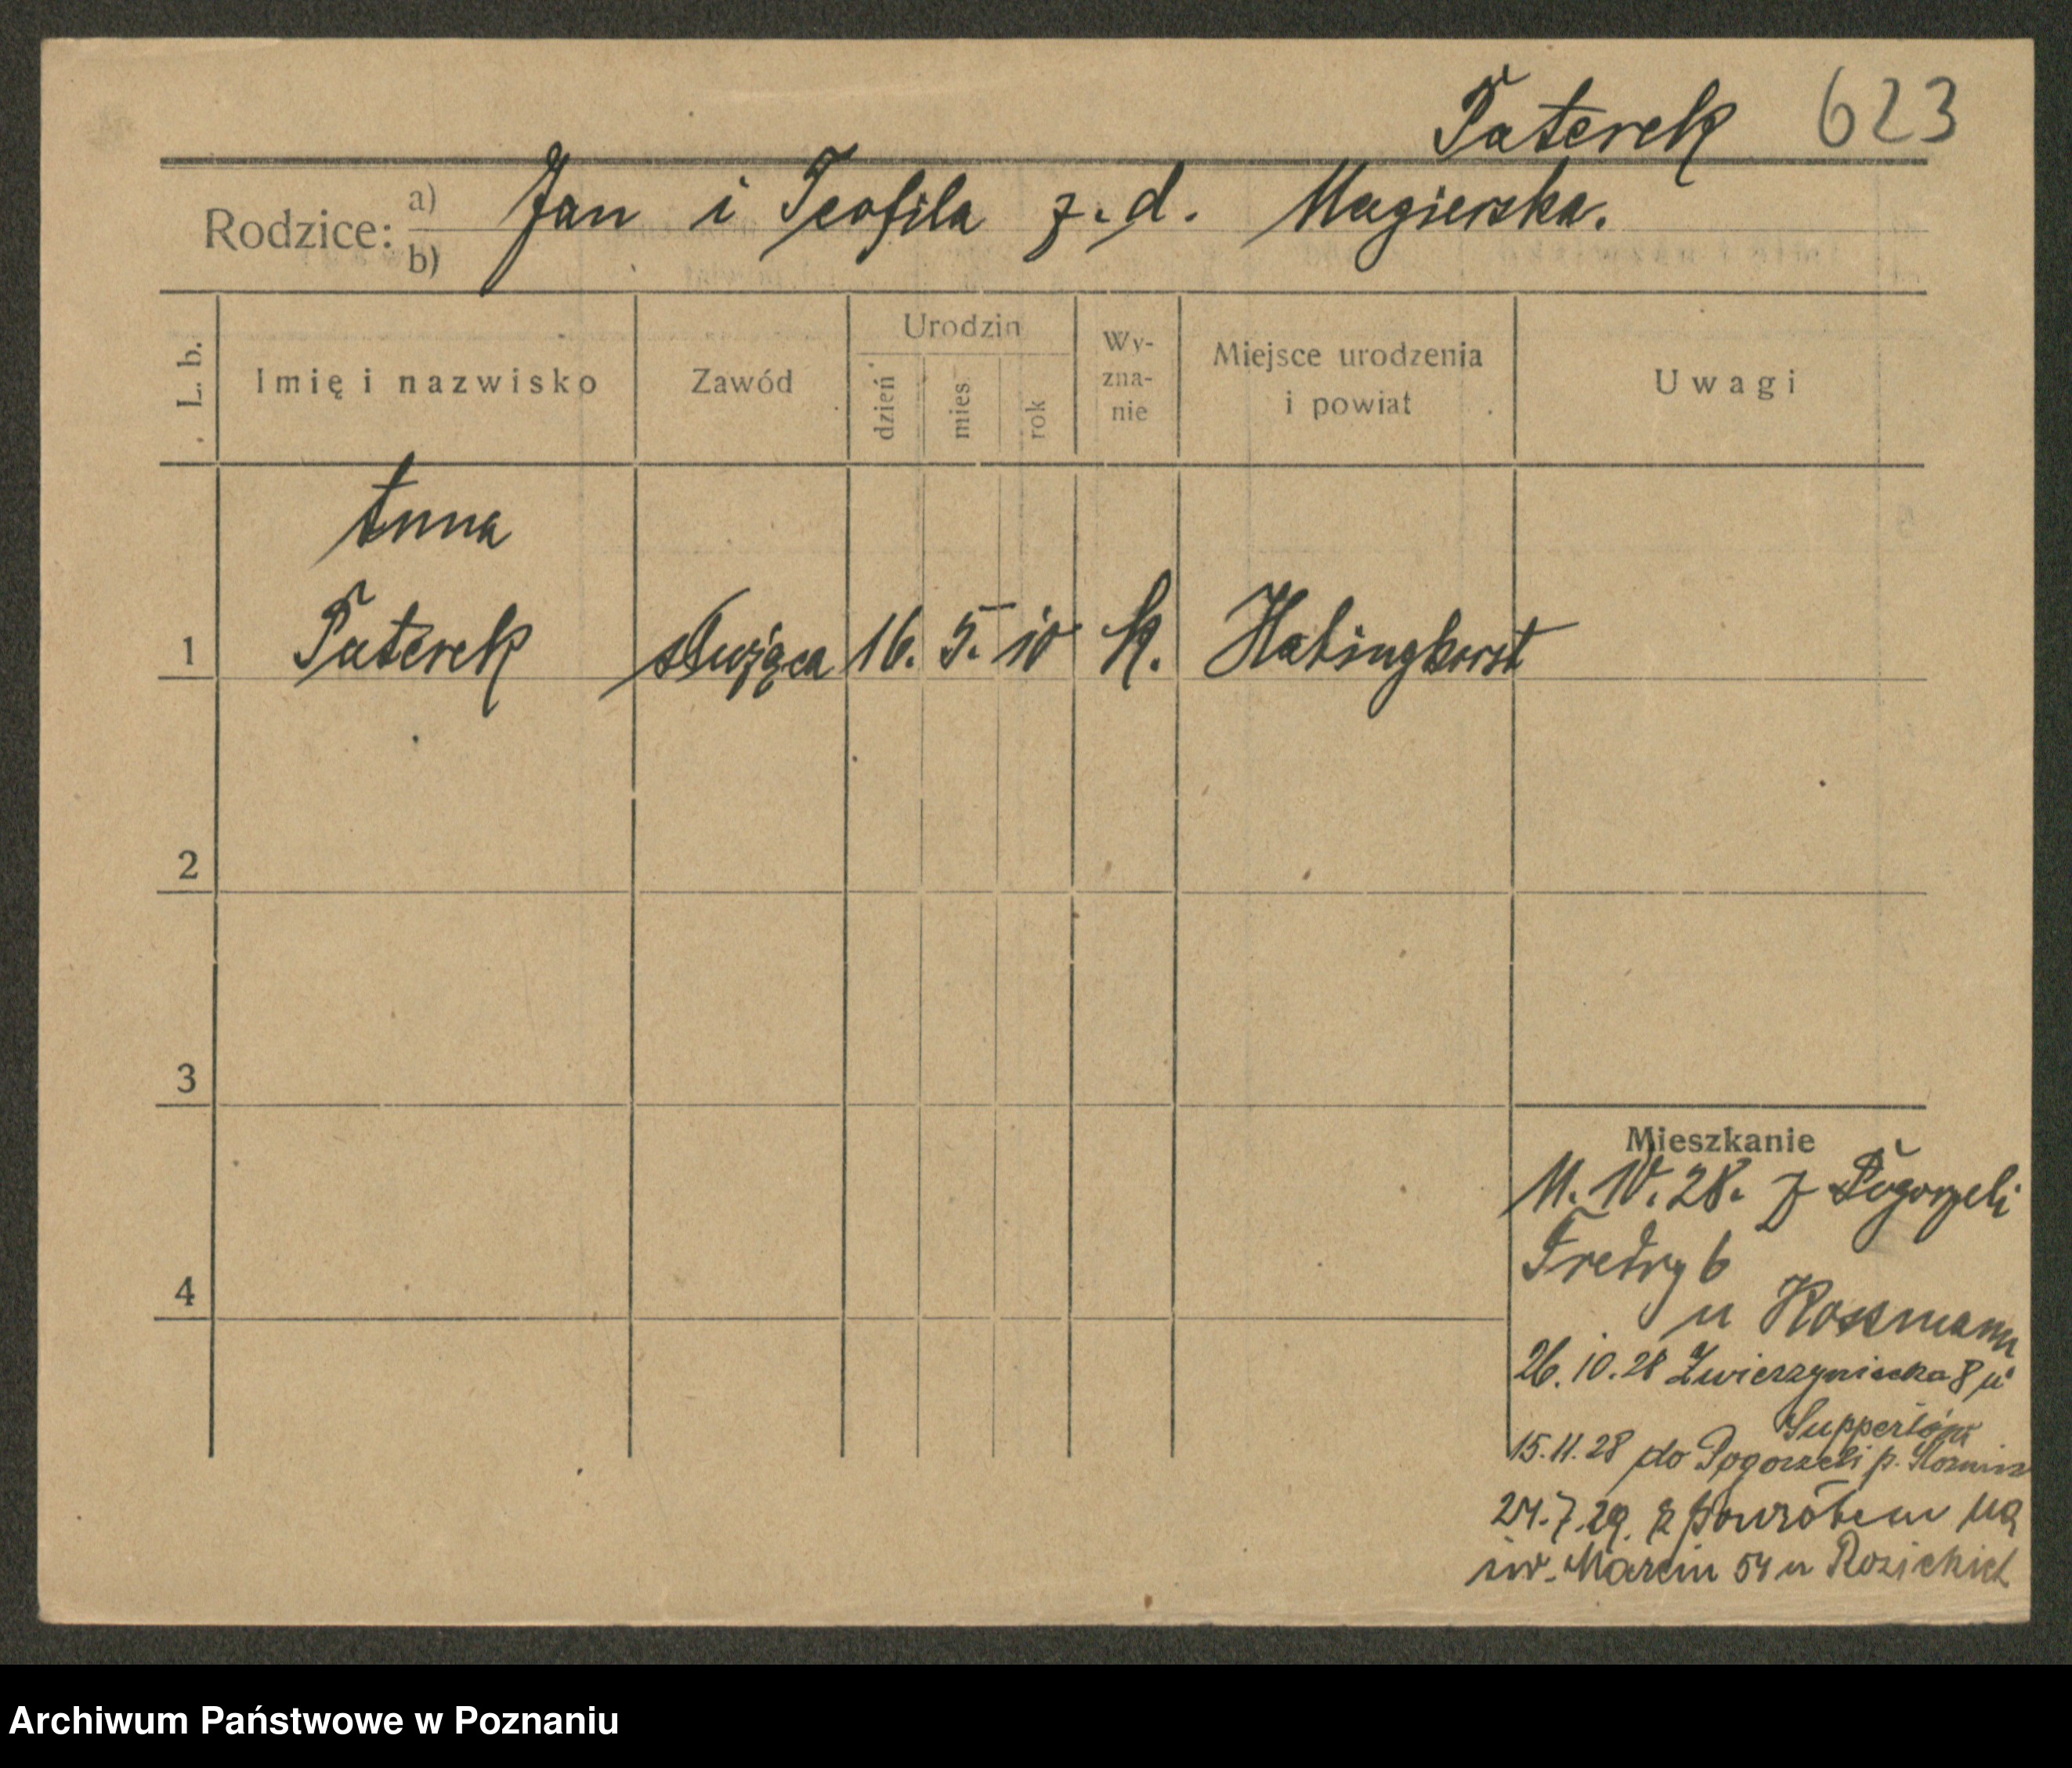 Paterek 623
Rodzice: a) b) Jan i Teofila z. d. Magierska.
L. b.
Imię i nazwisko
Zawód
Urodzin
dzień
mies.
rok
Wy-
zna-
nie
Miejsce urodzenia
i powiat
Uwagi
Anna
1 Paterek służąca 16. 5. 10 k. Habinghorst
2
3
4
Mieszkanie
11. 10. 28. z Pogorzeli
Fredry 6
u
26.10.28 Zwierzyniecka 8 u
15.11.28 do Pogorzeli p.
24.7.29. z powrotem na
św. Marcin 54 u
Archiwum Państwowe w Poznaniu